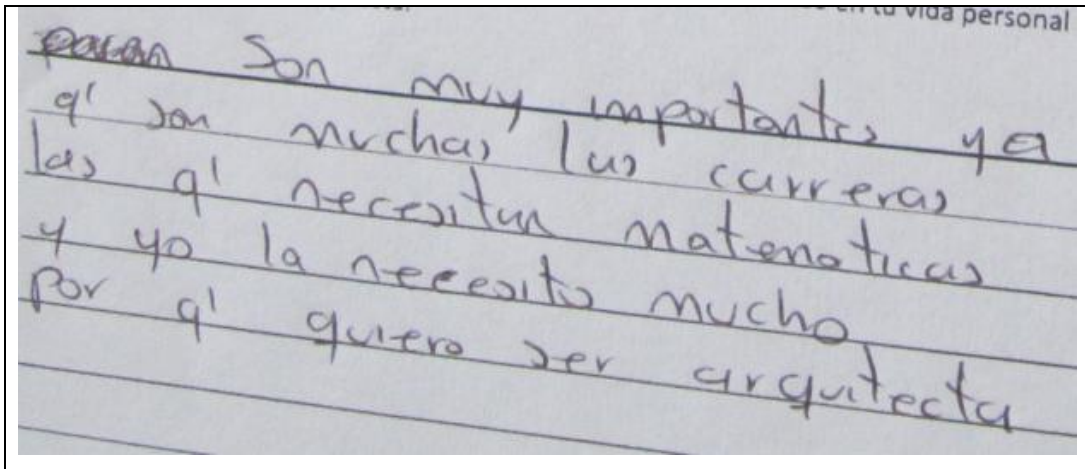 en tu vida personal
Son muy importantes ya
q' son muchas las carreras
las q' necesitan matematicas
y yo la necesito mucho
por q' quiero ser arquitecta